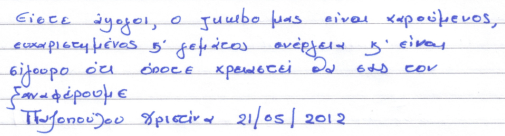 Είστε άψογοι, ο Jumbo μας είναι χαρούμενος,
ευχαριστημένος κ' γεμάτος ενέργεια κ' είναι
σίγουρο ότι όποτε χρειαστεί θα σας τον
ξαναφέρουμε
Χριστίνα 21/05/2012